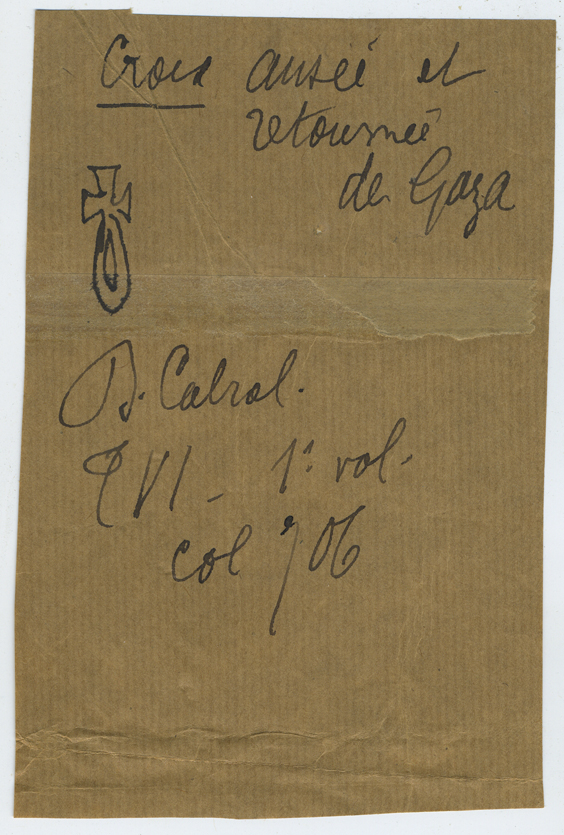 Croix ansée et
retournée
de Gaza
D. Cabrol.
T VI - 1º vol.
col 706